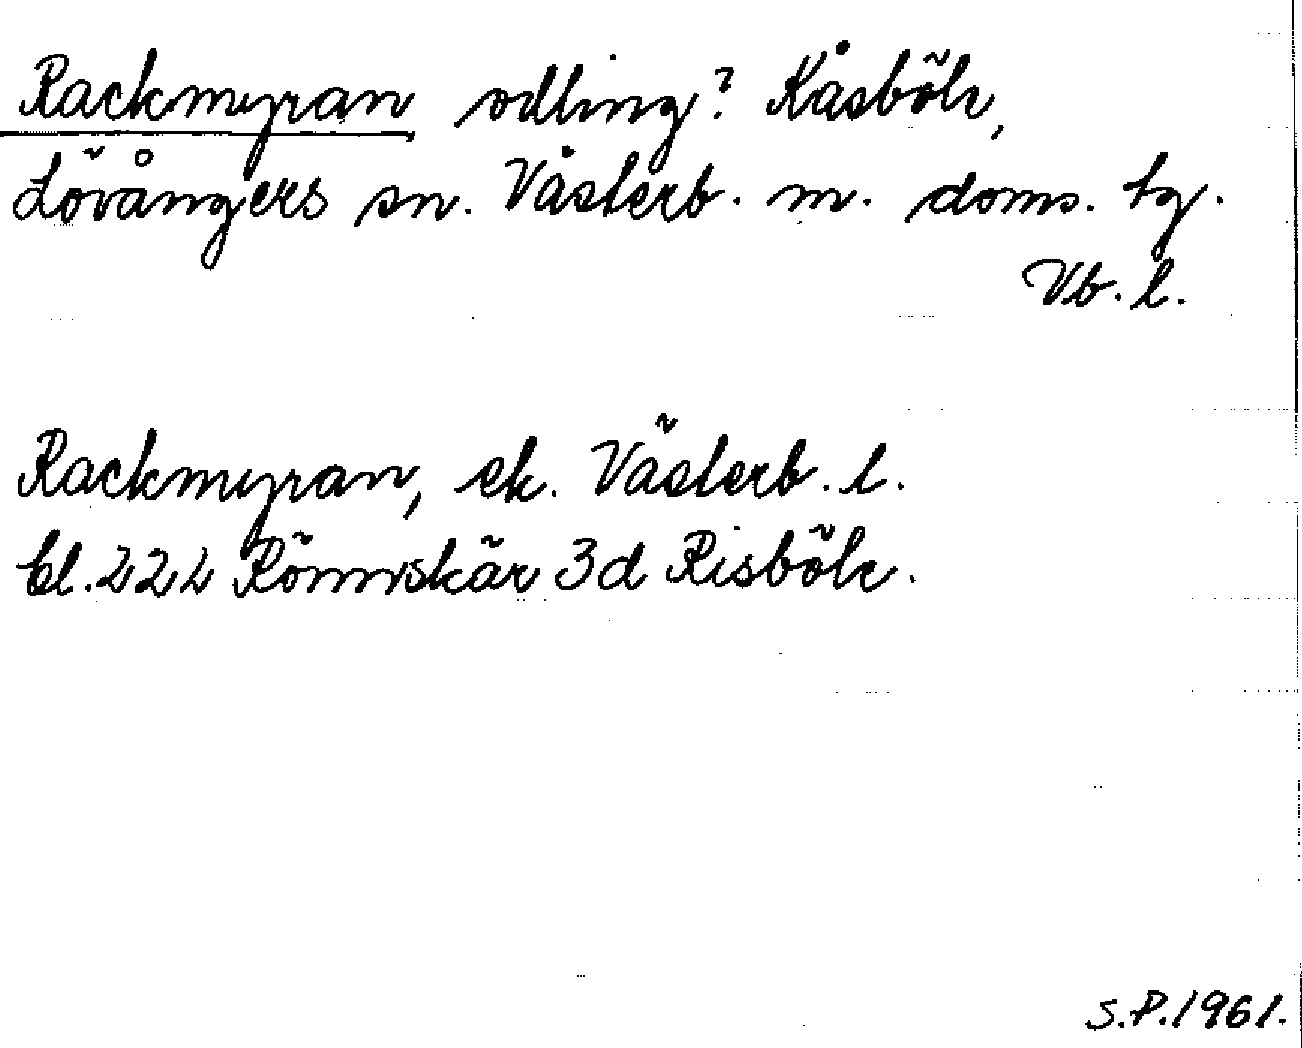 Rackmyran odling? Kåsböle,
Lövångers sn. Västerb. m. doms. tg.
Vb. l.
Rackmyran, ek. Västerb. l.
bl. 222 Rönnskär 3d Risböle.
S.P. 1961.